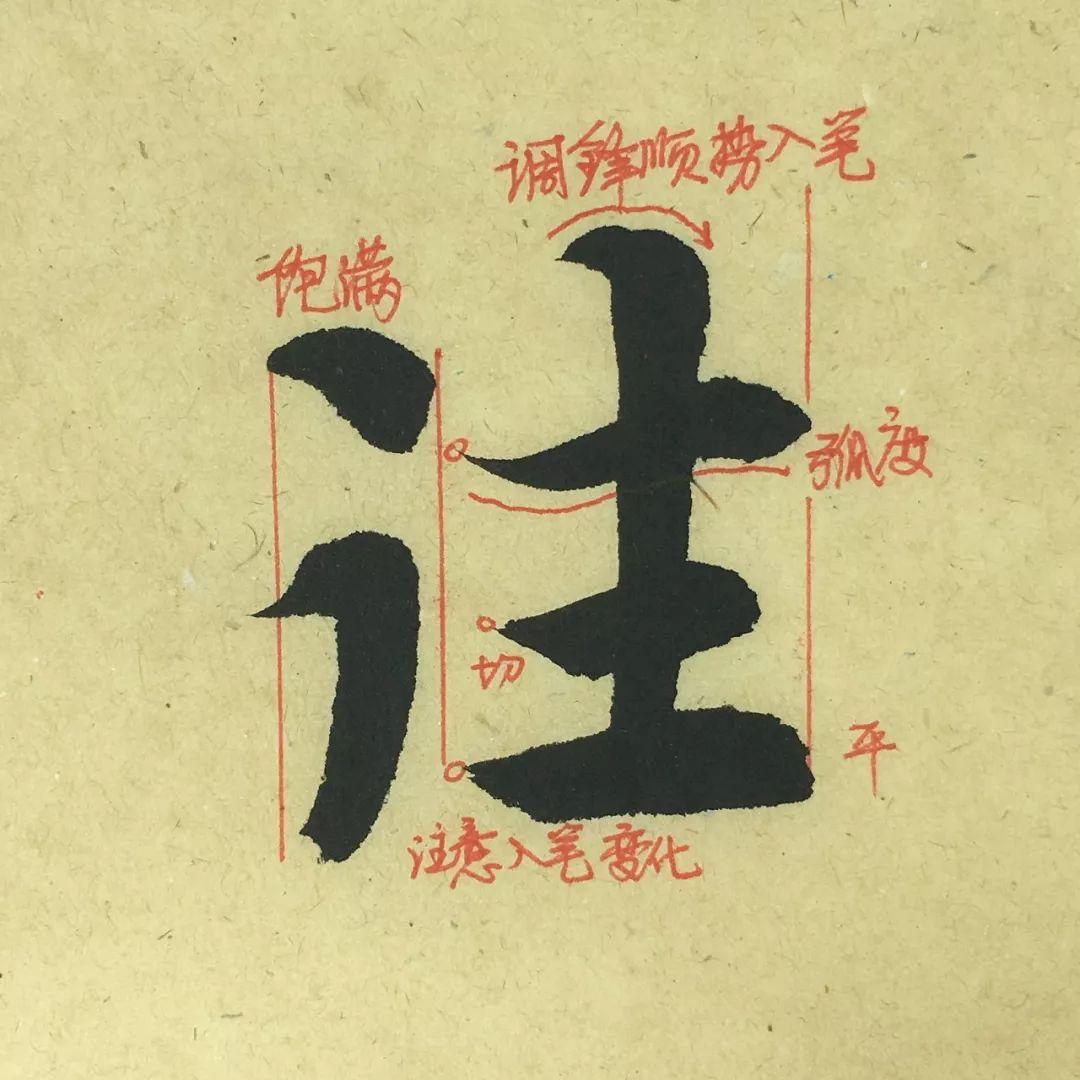 调鋒顺势入笔
饱满
注
弧度
切
平
注意入笔变化